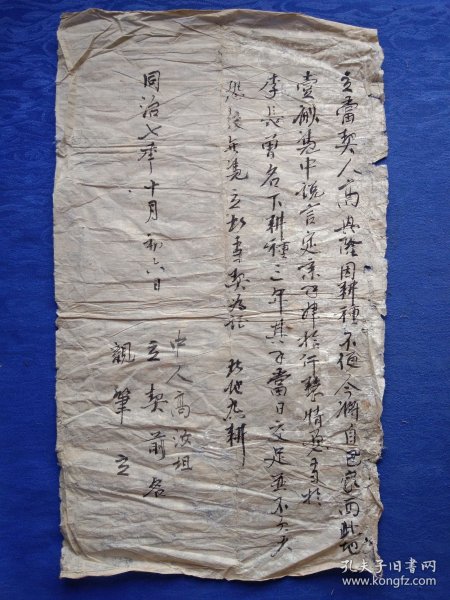 立當契人高興隆因耕種不便今將自己家西北地
壹畝憑中說言定京錢肆拾仟整情愿當於
李長曾名下耕種三年其錢當日交足並不欠少
恐後無憑立此當契為証 此地九耕
同治七年十月初六日
中人高汝祖
立契前名
親筆立
孔夫子旧书网
www.kongfz.com